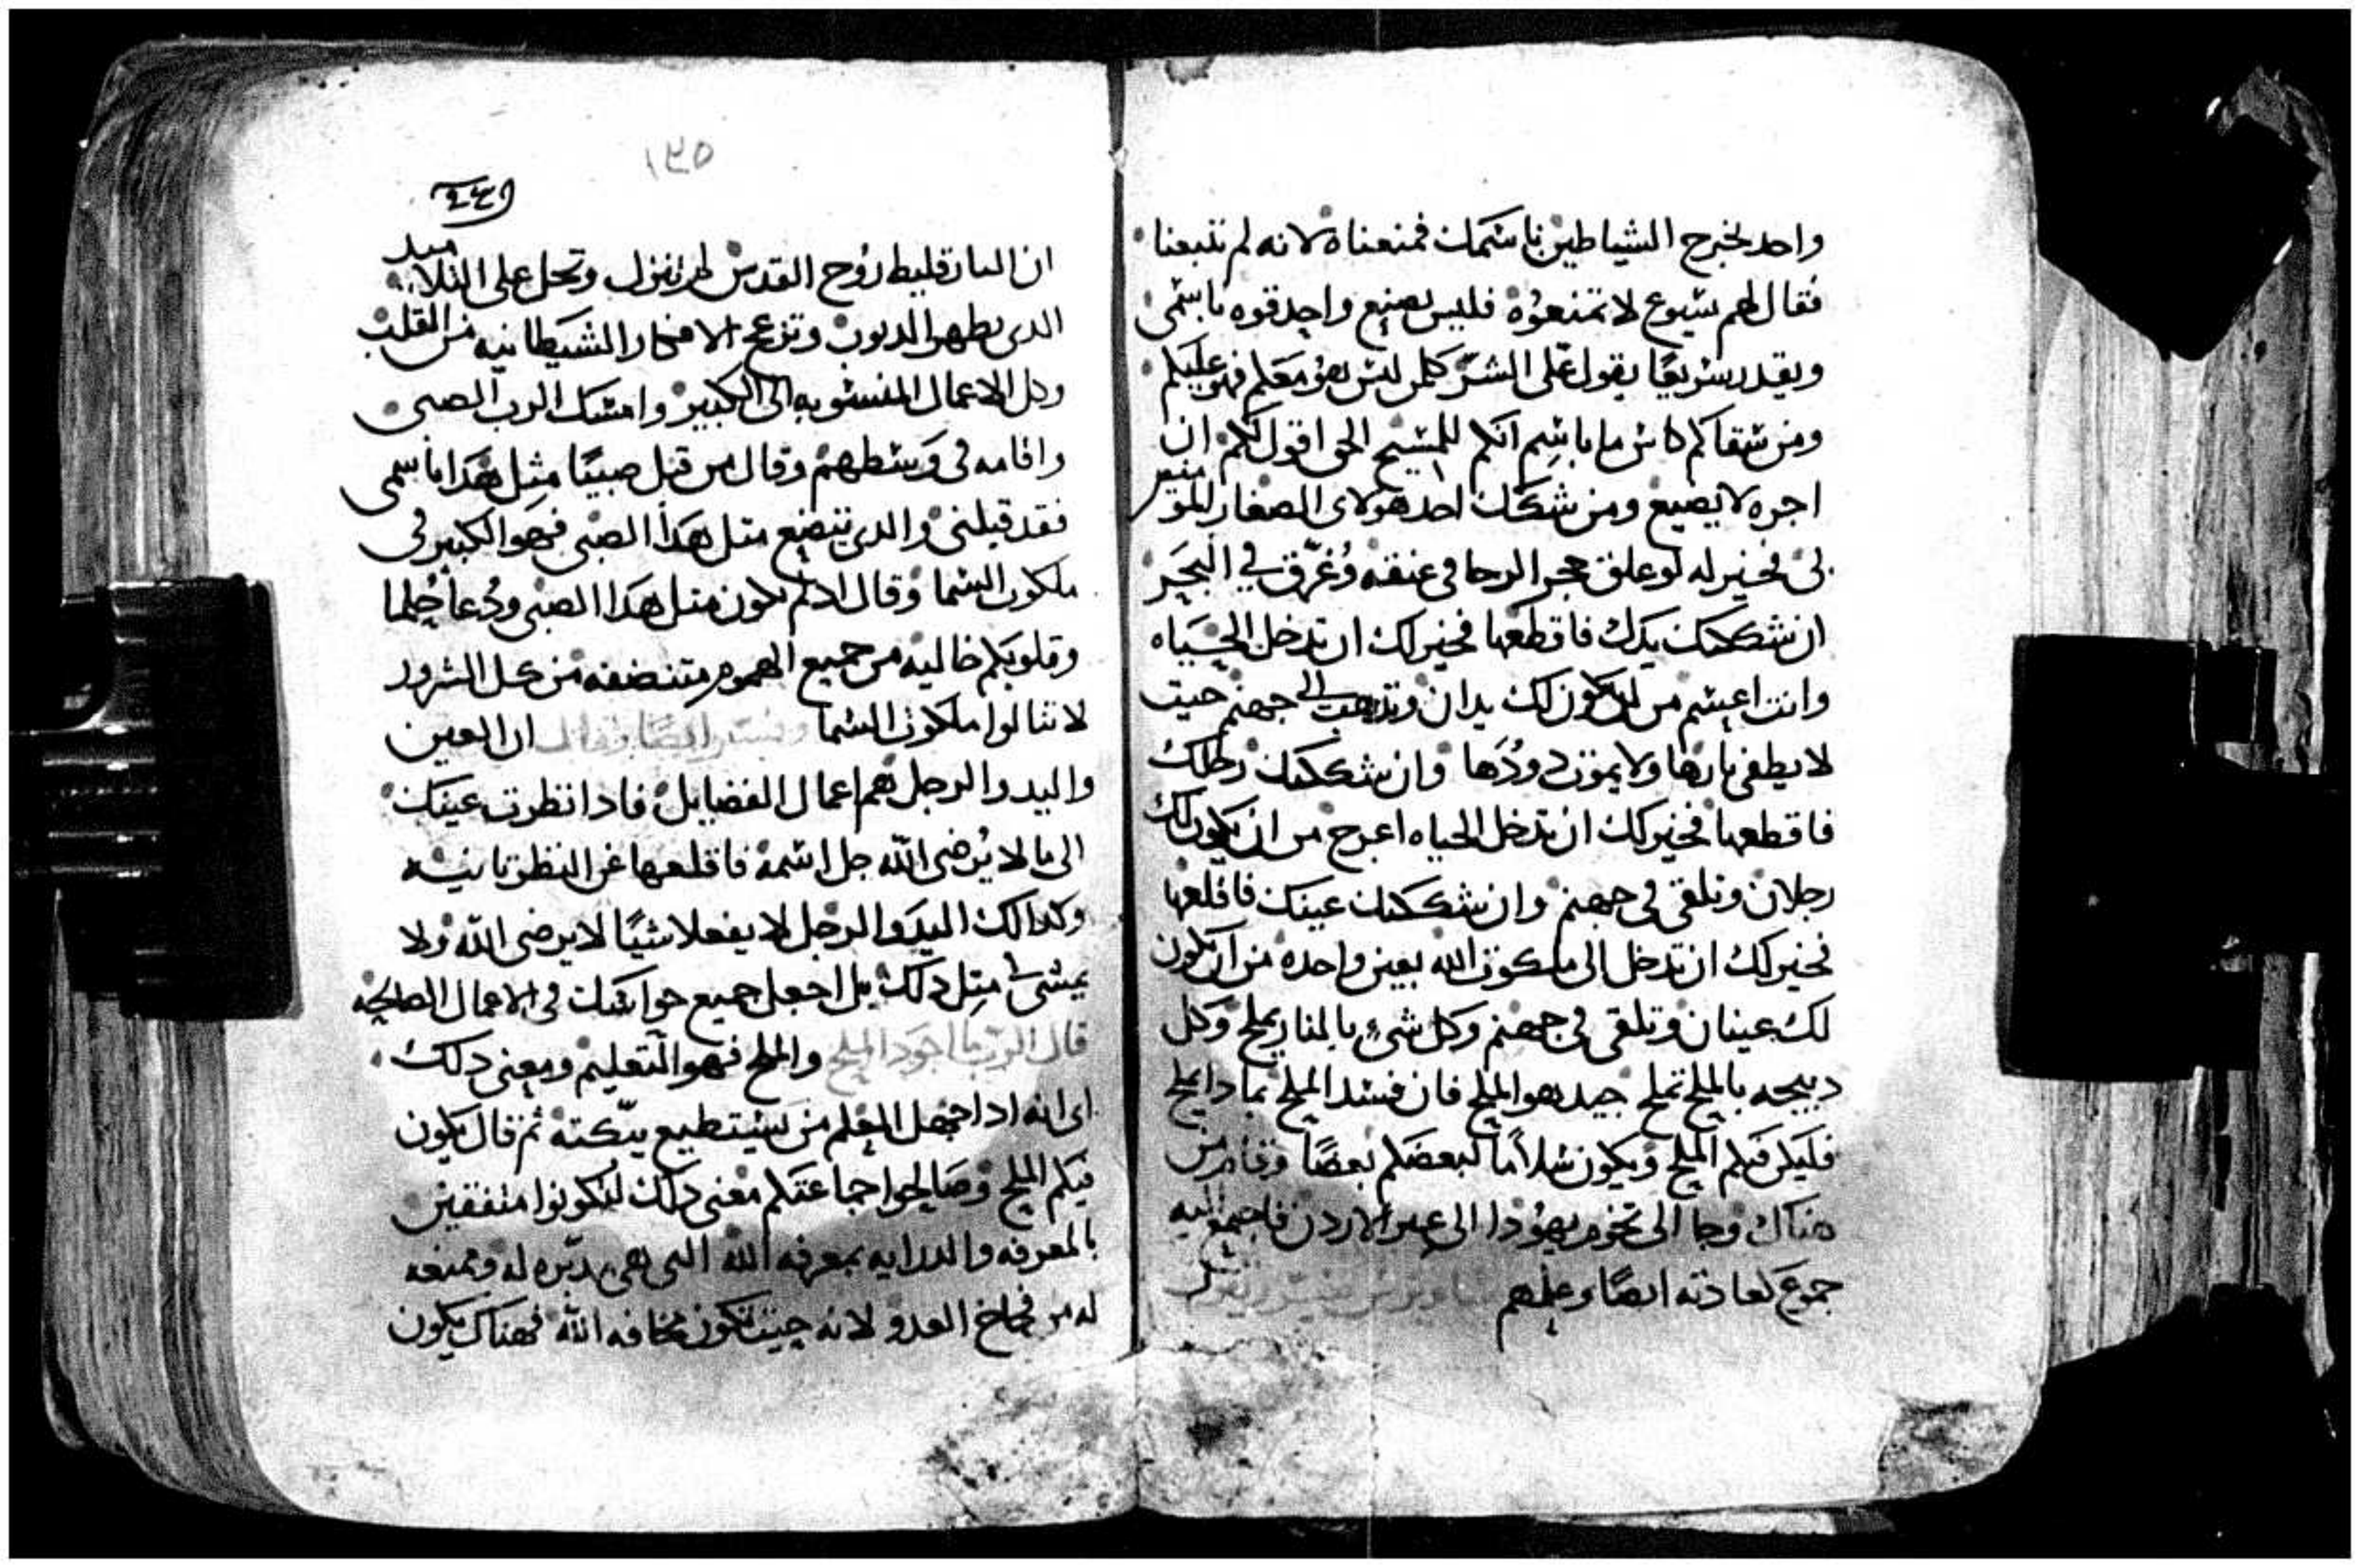 واحد يخرج الشياطين باسمك فمنعناه لانه لم يتبعنا
فقال لهم يسوع لا تمنعوه فليس يصنع واحد قوه باسمى
ويقدر سريعًا يقول على الشر كلمن ليس هو معكم فهو عليكم
ومن سقاكم كاس ما باسم انكم للمسيح الحق اقول لكم ان
اجره لا يضيع ومن شكك احد هولاى الصغار المومنين
بى فخير له لو علق حجر الرحا فى عنقه وغرّق في البحر
ان شككتك يدك فاقطعها فخير لك ان تدخل الحياه
وانت اعسم من ان يكون لك يدان وتذهب الى جهنم حيت
لا يطفى نارها ولا يموت دودها وان شككتك رجلك
فاقطعها فخير لك ان تدخل الحياه اعرج من ان يكون لك
رجلان وتلقى فى جهنم وان شككتك عينك فاقلعها
فخير لك ان تدخل الى ملكوت الله بعين واحده من ان يكون
لك عينان وتلقى فى جهنم وكل شئ بالنار يملح وكل
دبيحه بالملح تملح جيد هو الملح فان فسد الملح بما دا يملح
فليكن فيكم الملح ويكون سلاما لبعضكم بعضًا وقام من
هناك وجا الى تخوم يهودا الى عبر الاردن فاجتمع اليه
جموع لعادته ايضًا وعلمهم
١٣٥
ان البارقليط روح القدس لم ينزل وتحل على التلاميد
الدى يطهر الدنوب وتزعج الافكار الشيطانيه من القلب
وكل الاعمال المنسوبه الى الكبير وامسك الرب الصبى
واقامه فى وسطهم وقال من قبل صبيًا مثل هدا باسمى
فقد قبلنى والدى يتضع متل هدا الصبى فهو الكبير فى
ملكوت السما وقال اد لم تكون متل هدا الصبى ودعا حلما
وقلوبكم خاليه من جميع الهموم متنضفه من كل الشرور
لا تنالوا ملكوت السما وفسر ايضًا وقال ان العين
واليد والرجل هم اعمال الفضايل فادا نظرت عينك
الى ما لا يرضى الله جل اسمه فاقلعها عن النظر بانيه
وكدالك اليد والرجل لا يفعلا شيًا لا يرضى الله ولا
يمشى متل دلك بل اجعل جميع حواسك فى الاعمال الصالحه
قال الرب ما اجود الملح والملح فهو التعليم ومعنى دلك
اى انه ادا جهل المعلم من يستطيع يبكته ثم قال يكون
فيكم الملح وصالحوا جماعتكم معنى دلك لتكونوا متفقين
بالمعرفه والدرايه بمعرفه الله التى هى مدبره له وتمنعه
له من فخاخ العدو لانه حيت تكون مخافه الله فهناك يكون